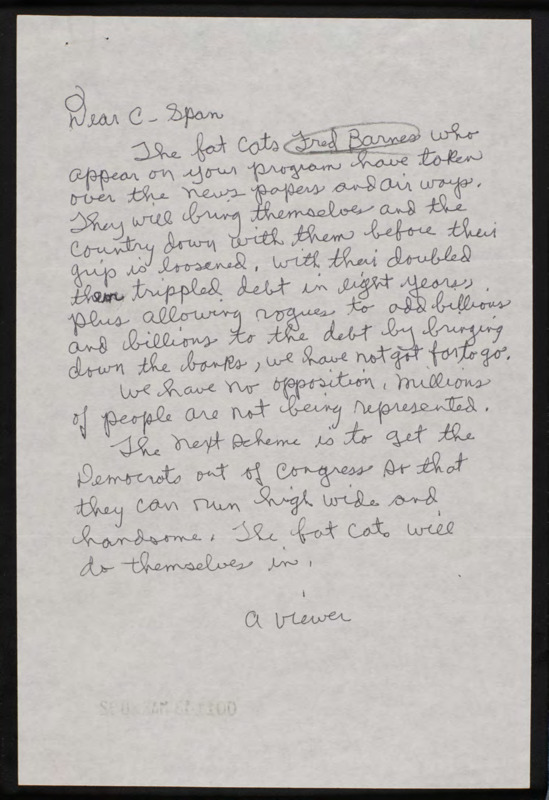 Dear C-Span
The fat cats Fred Barnes who
appear on your program have taken
over the news papers and air ways.
They will bring themselves and the
country down with them before their
grip is loosened. With their doubled
then trippled debt in eight years.
plus allowing rogues to add billions
and billions to the debt by bringing
down the banks, we have not got far to go.
We have no opposition. Millions
of people are not being represented.
The next scheme is to get the
Democrats out of Congress so that
they can run high wide and
handsome. The fat cats will
do themselves in.
A viewer